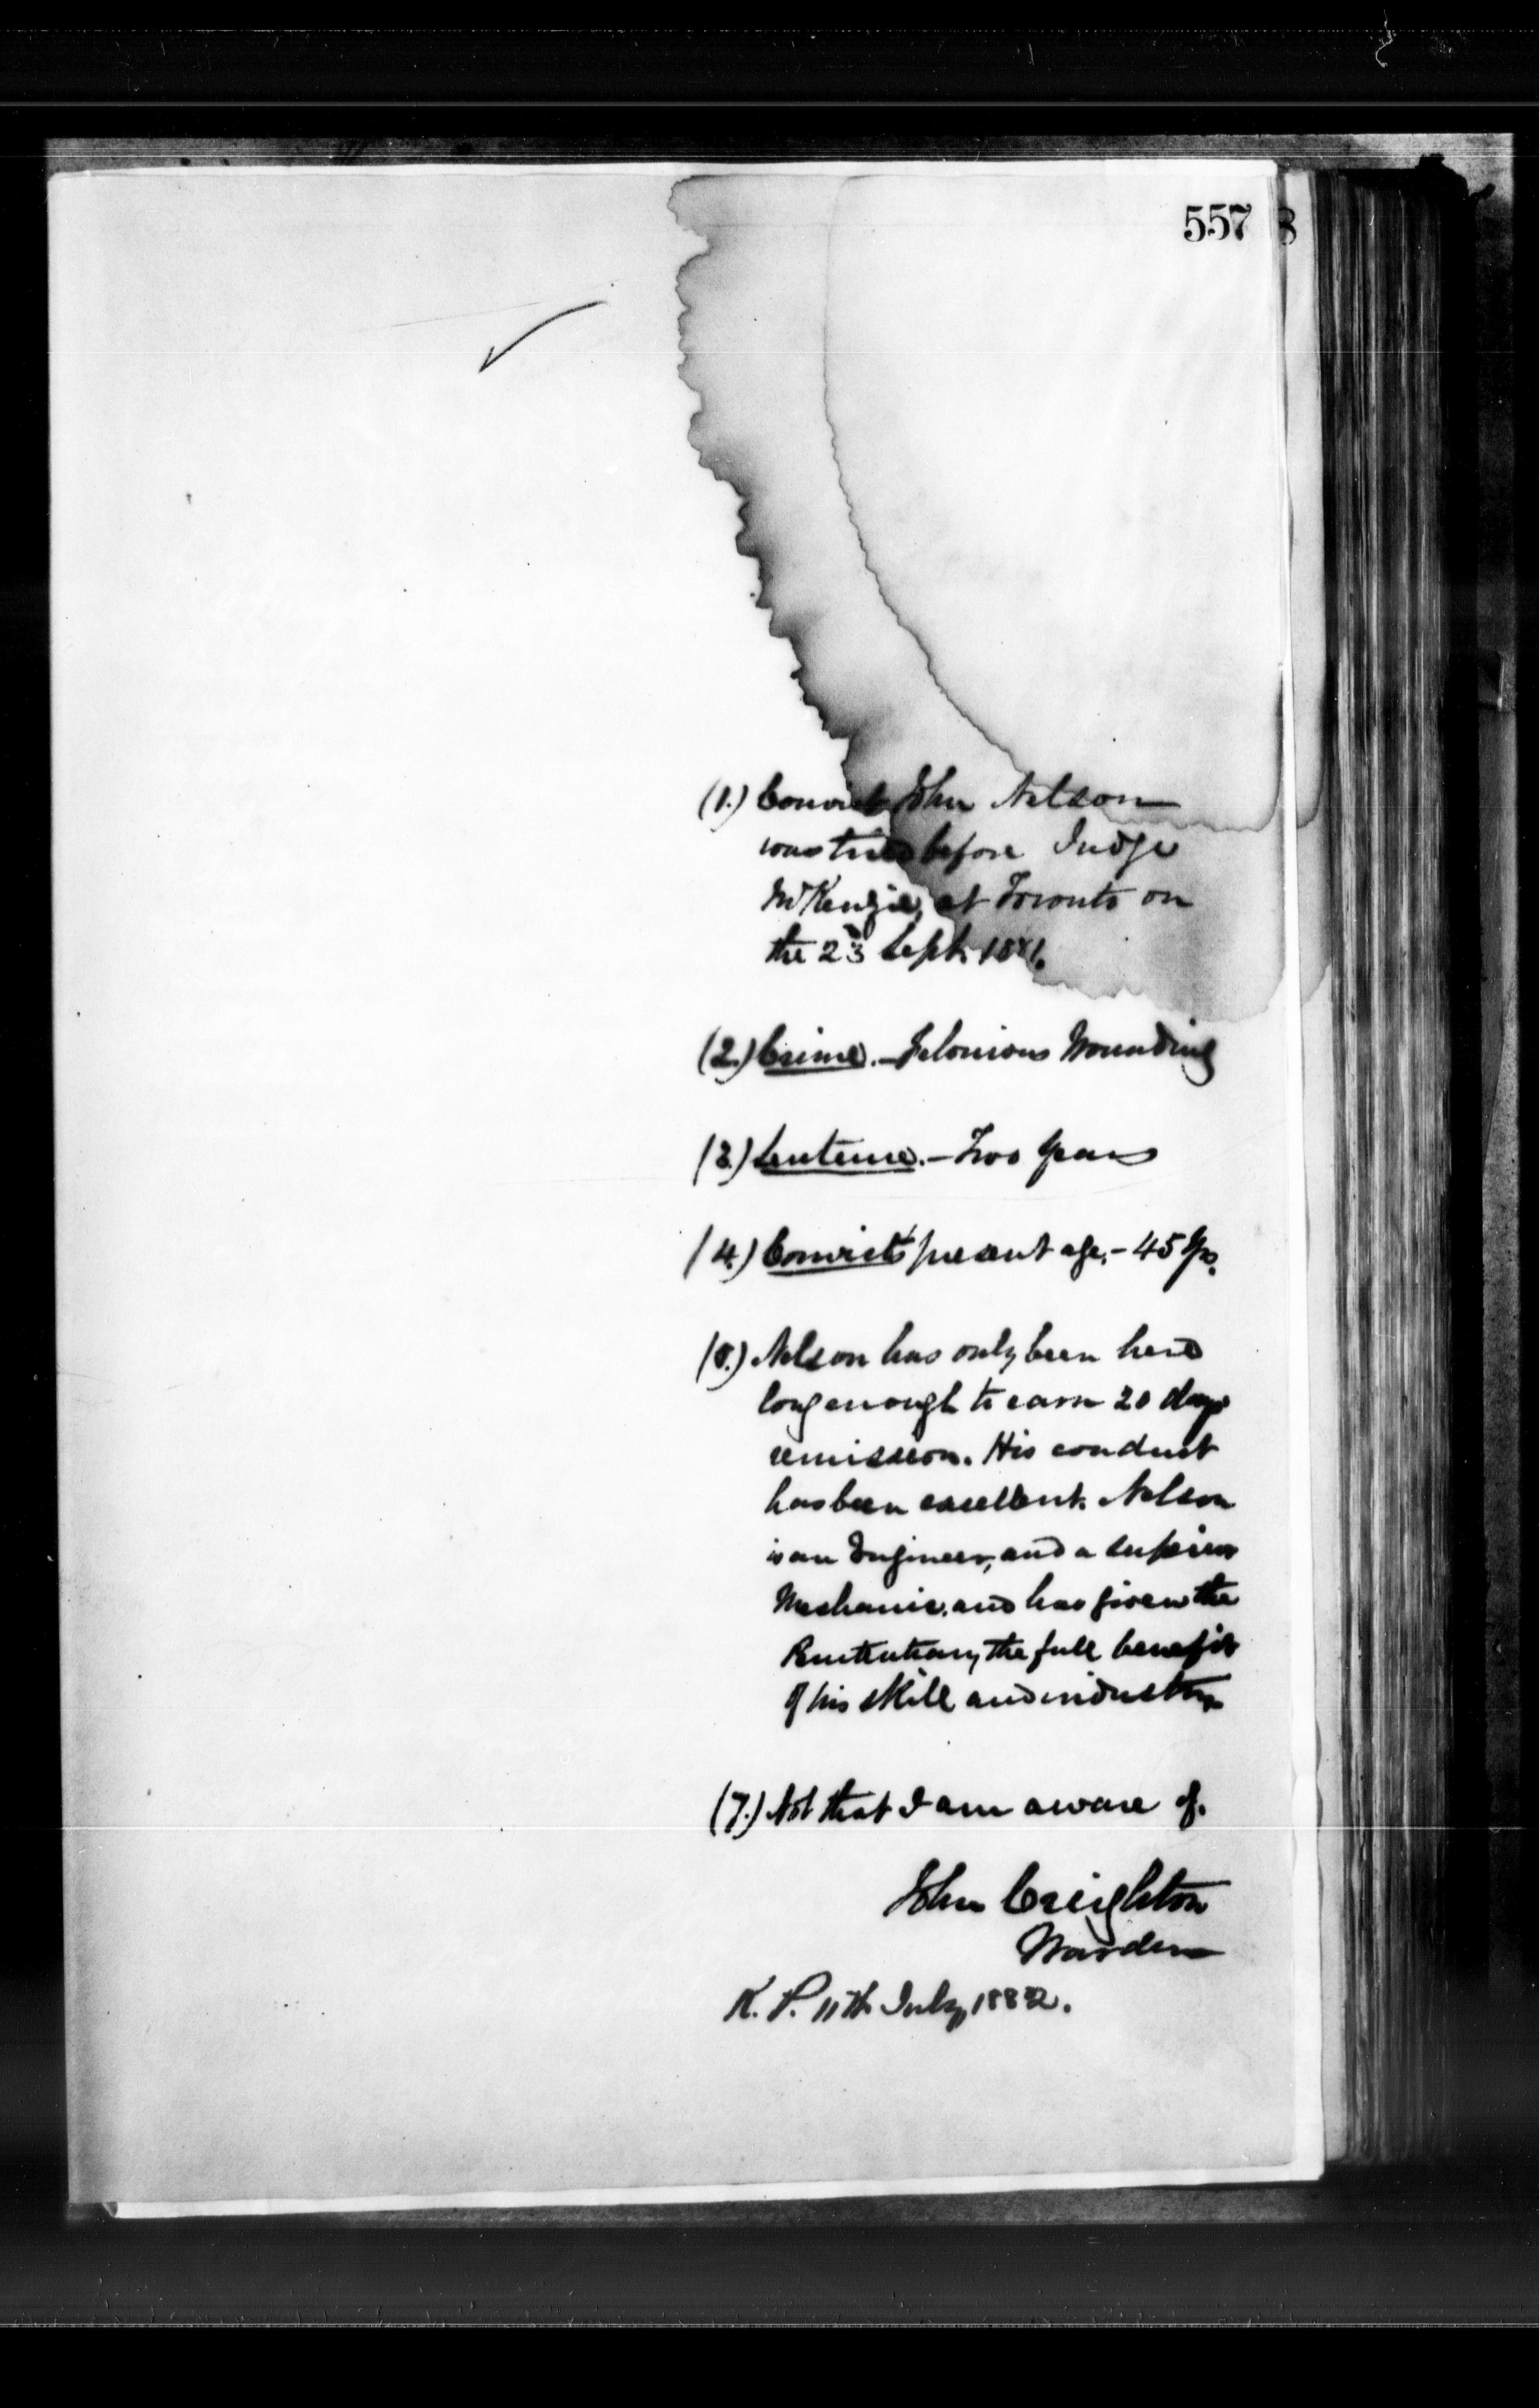 557
(1.) Convict John Nelson
was tried before Judge
McKenzie, at Toronto on
the 23 Sept. 1881.
(2.) Crime. - Felonious Wounding
(3.) Sentence. - Two Years
(4.) Convict's present age. - 45 Yrs.
Nelson has only been here
long enough to earn 20 days
remission. His conduct
has been excellent. Nelson
is an Engineer, and a superior
Mechanic, and has given the
Penitentiary the full benefit
of his skill and industry.
(7.) Not that I am aware of.
John Creighton
Warden
K. P. 11th July, 1882.